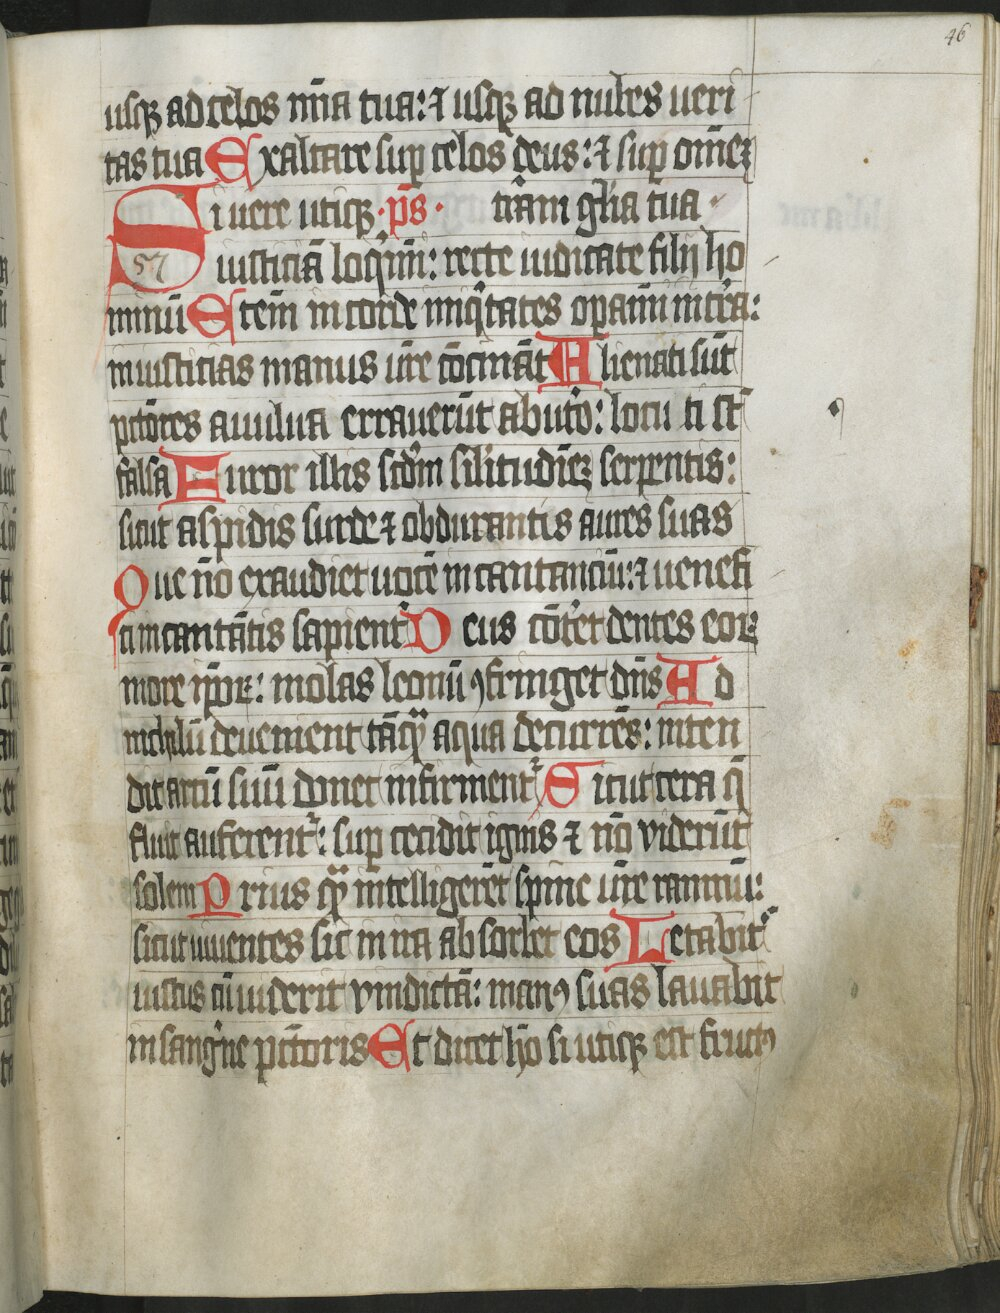 46
usqꝫ ad celos mīa tua: ⁊ usqꝫ ad nubes ueri
tas tua Exaltare suꝑ celos deus: ⁊ suꝑ omēꝫ
Si uere utiqꝫ · pˉs · t̄ram gl̄ia tua ·
57 iusticiā loqͥmī: recte iudicate filij ho
minū Etem̄ in corde iniqͥtates oꝑamī in t̄ra:
iniusticias manus ur̄e cōcināt Alienati sūt
pctōres a uulua erraverūt ab ut̄o: locu ti st̄
falsa Furor illis scdm̄ sil̄itudīeꝫ serpentis:
sicut aspidis surde ⁊ obdurantis aures suas
Que nō exaudiet uocē incantanciū: ⁊ uenefi
ci incantātis sapient̉ Deus cōt̉et dentes eoꝝ
in ore ip̄oꝝ: molas leonū ꝯfringet dn̄s Ad
nichilū devenient tāqͣꝫ aqua decurrēs: inten
dit arcū suū donec infirment᷑ Sicut cera q̄
fluit auferent᷑: suꝑ cecidit ignis ⁊ nō viderūt
solem Prius qͣꝫ intelligerēt spine ur̄e ramnū:
sicut uiuentes sic in ira absorbet eos Letabit᷑
iustus cū uiderit vindictā: manꝰ suas lavabit
in sangͥne pctōris Et dicet hō si utiqꝫ est fructꝰ